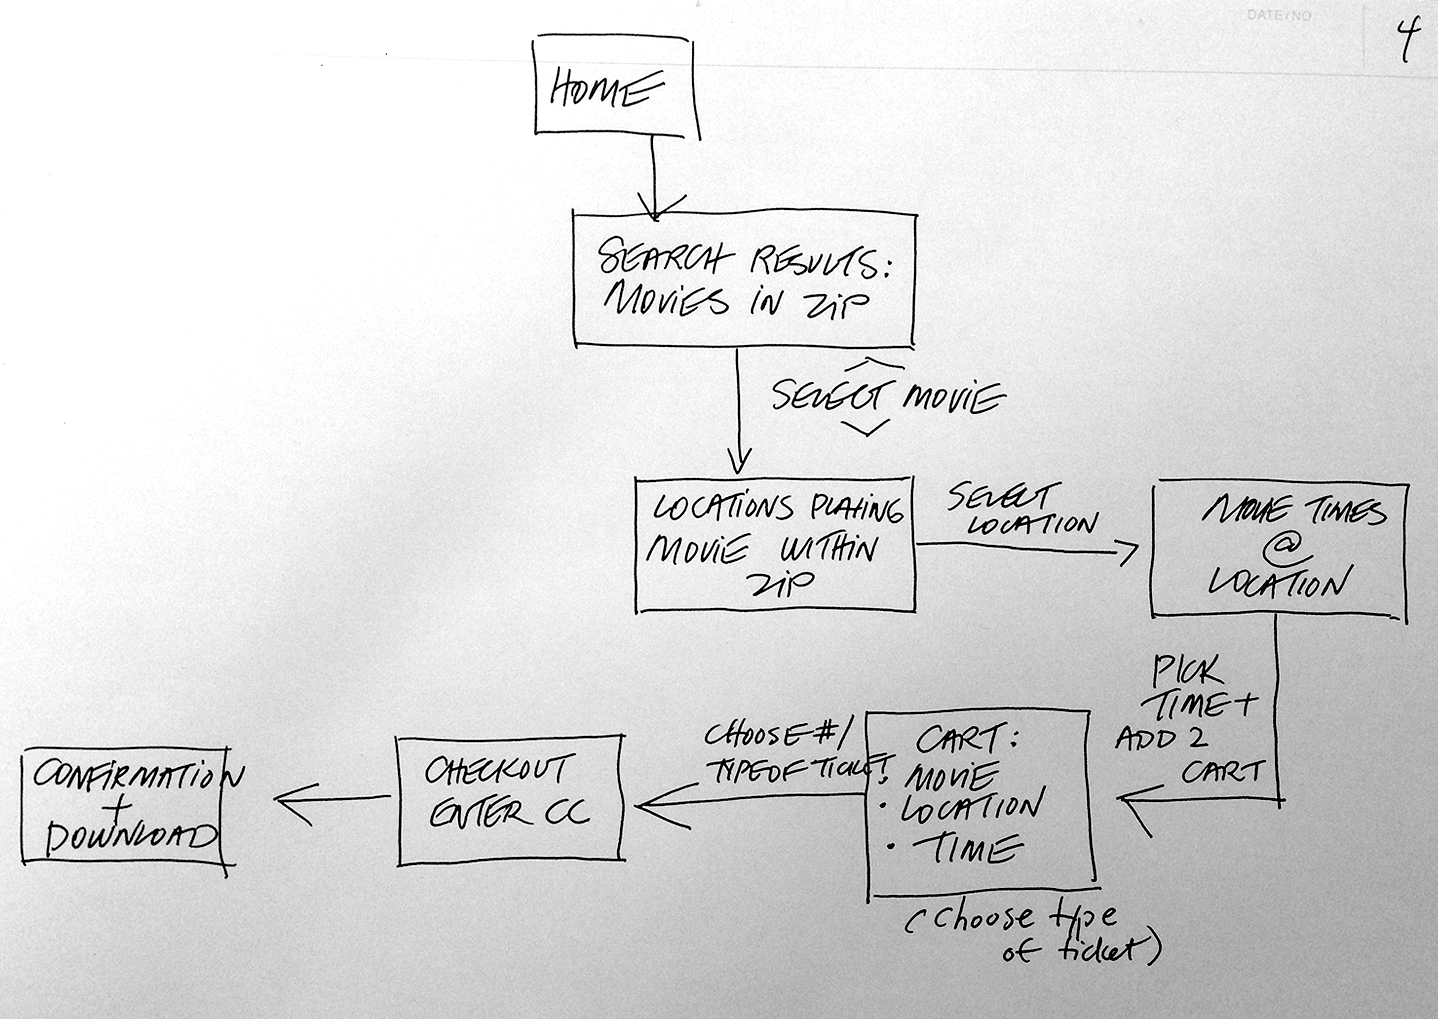 DATE/NO
4
HOME
SEARCH RESULTS:
MOVIES IN ZIP
SELECT MOVIE
LOCATIONS PLAYING
MOVIE WITHIN
ZIP
SELECT
LOCATION
MOVIE TIMES
@
LOCATION
PICK
TIME +
ADD 2
CART
CART:
• MOVIE
• LOCATION
• TIME
(choose type
of ticket)
CHOOSE #/
TYPE OF TICKET
CHECKOUT
ENTER CC
CONFIRMATION
+
DOWNLOAD